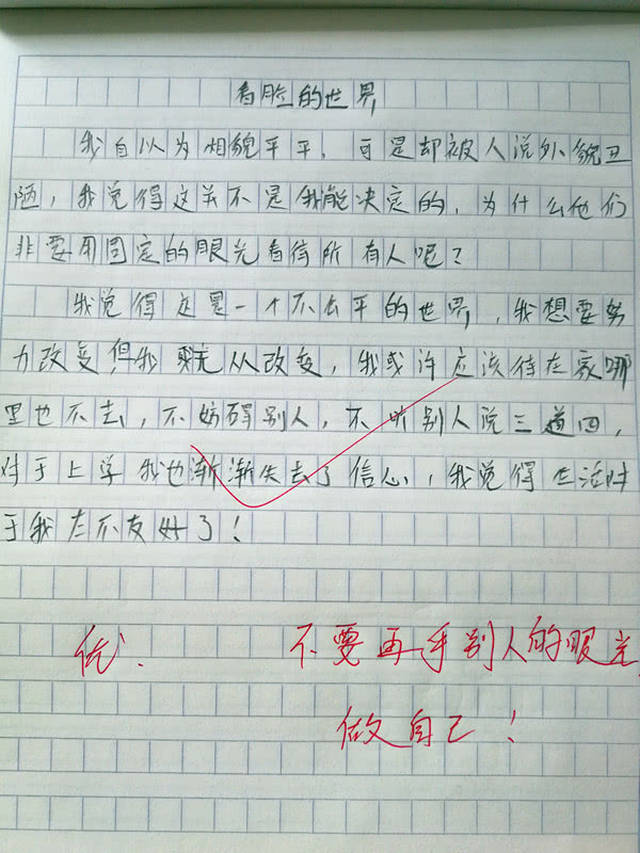 看脸的世界
我自以为相貌平平，可是却被人说外貌丑
陋，我觉得这并不是我能决定的，为什么他们
非要用固定的眼光看待所有人呢？
我觉得这是一个不公平的世界，我想要努
力改变但我无从改变，我或许应该待在家哪
里也不去，不妨碍别人，不听别人说三道四，
对于上学我也渐渐失去了信心，我觉得生活对
于我太不友好了！
优.
不要再乎别人的眼光
做自己！